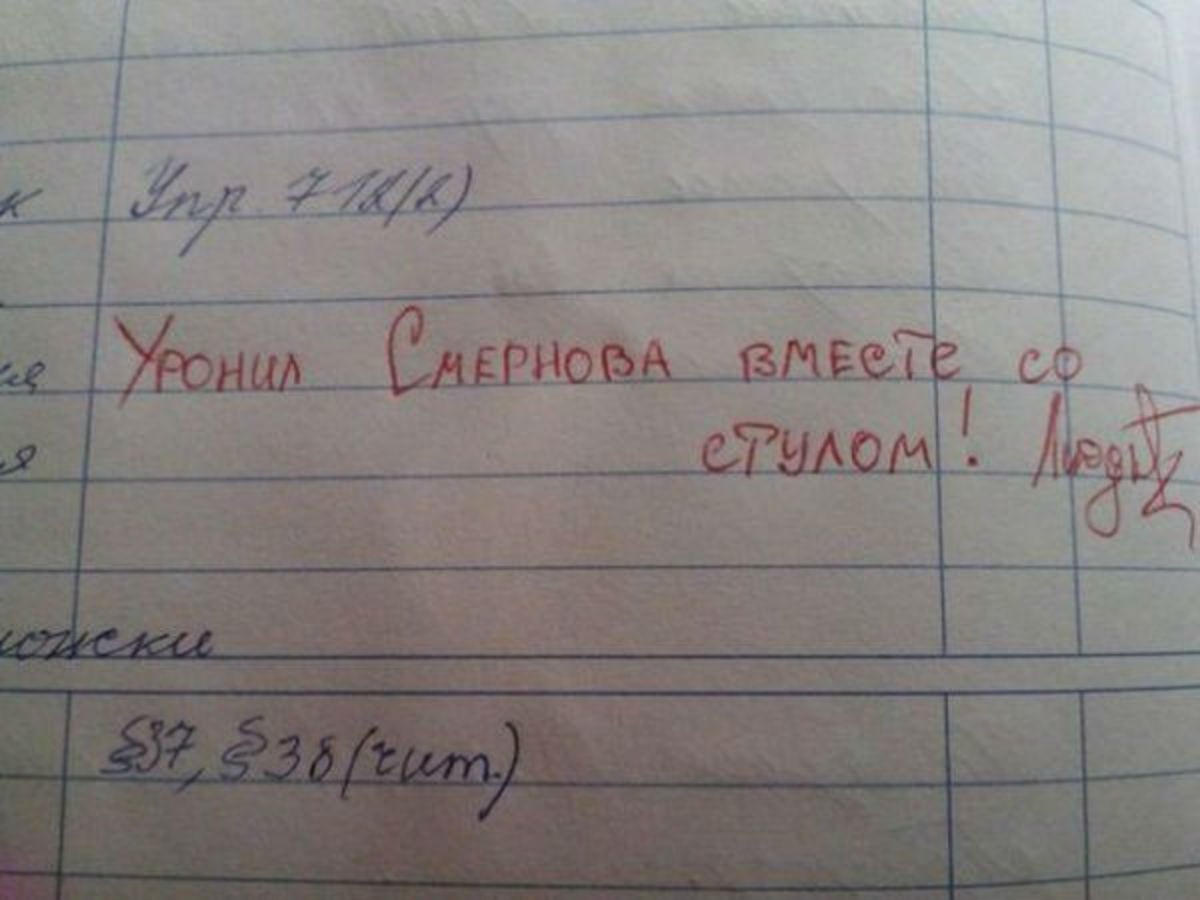 к Упр 712(2)
Уронил Смернова вместе со
стулом!
я
§37, §38 (чит.)